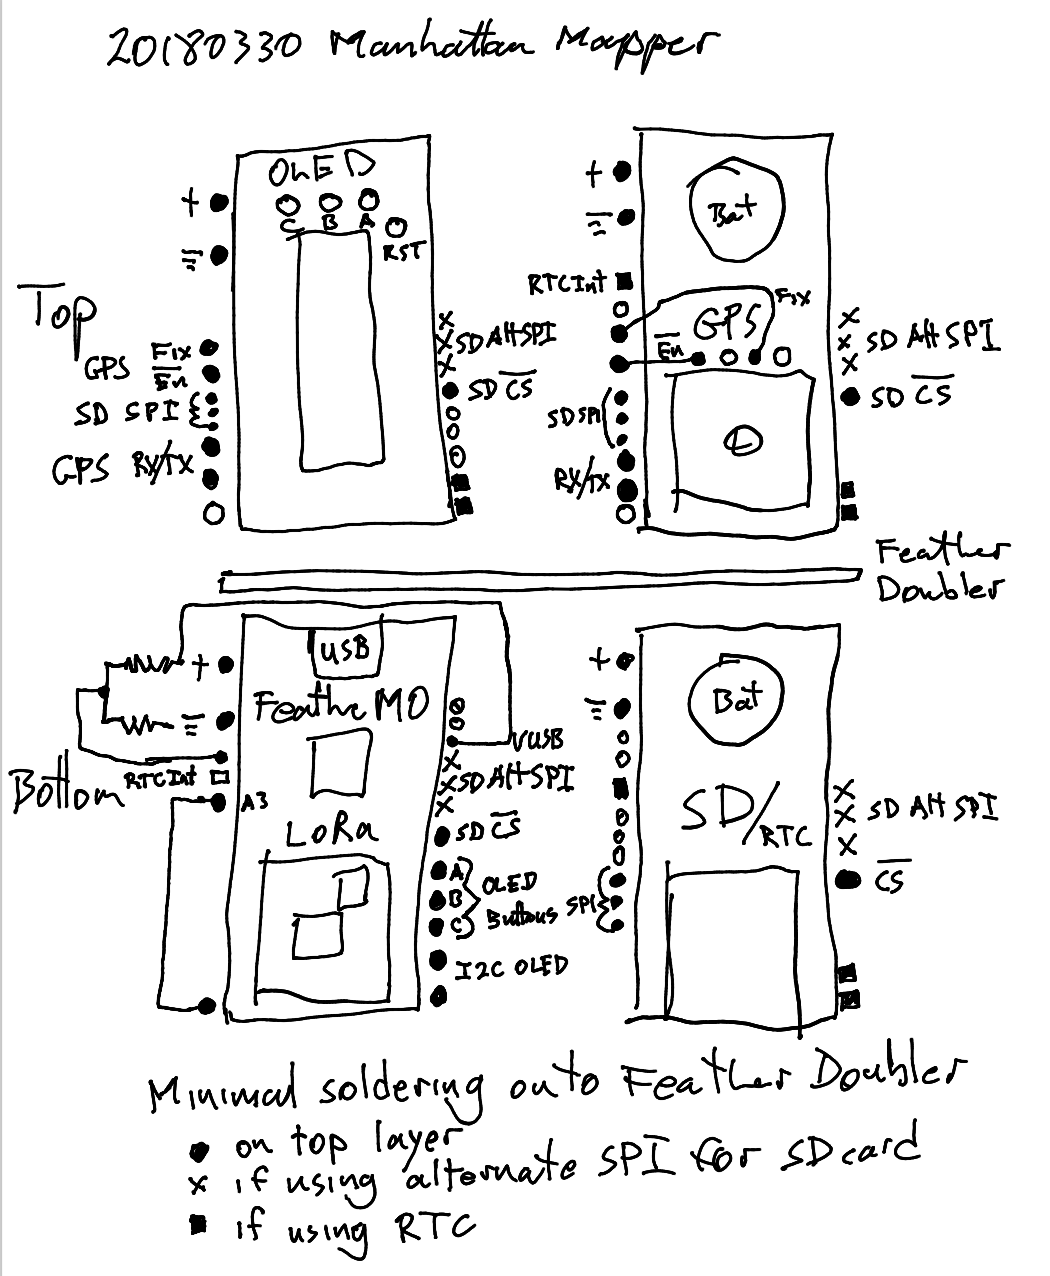 20180330 Manhattan Mapper
Top
OLED
+
C B A
RST
GPS Fix
En
SD SPI
GPS RX/TX
SD Alt SPI
SD CS
+
Bat
RTC Int
Fix
GPS
En
SD SPI
RX/TX
SD Alt SPI
SD CS
Feather
Doubler
Bottom
USB
+
Feather M0
VUSB
RTC Int
A3
SD Alt SPI
LoRa
SD CS
A
B
C
OLED
Buttons
I2C OLED
+
Bat
SD/RTC
SPI
SD Alt SPI
CS
Minimal soldering onto Feather Doubler
● on top layer
x if using alternate SPI for SD card
■ if using RTC